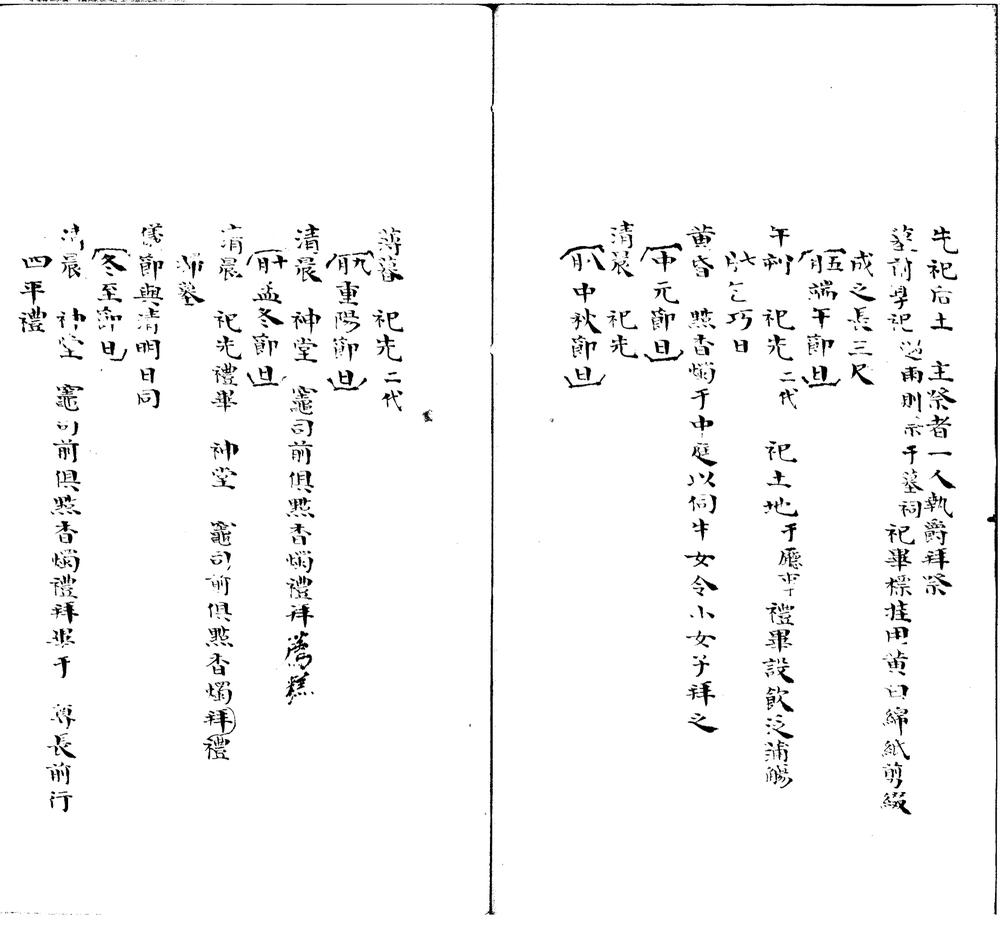 先祀后土　主祭者一人執爵拜祭
墓前舉祀遇雨則祭于墓祠祀畢標挂用黄白綿紙剪綴
成之長三尺
五月端午節日
午刻　祀先二代　祀土地于廳事禮畢設飲泛蒲觴
七月乞巧日
黄昏　㸃香燭于中庭以伺牛女令小女子拜之
中元節日
清晨　祀先
八月中秋節日
薄暮　祀先二代
九月重陽節日
清晨　神堂　竈司前俱㸃香燭禮拜薦糕
十月孟冬節日
清晨　祀先禮畢　神堂　竈司前俱㸃香燭拜禮
掃墓
儀節與清明日同
冬至節日
清晨　神堂　竈司前俱㸃香燭禮拜畢于　尊長前行
四平禮